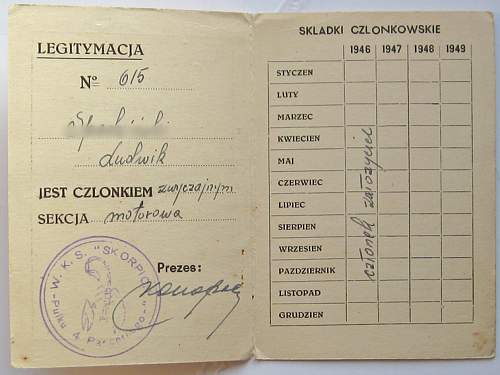 LEGITYMACJA
Nº 615
Ludwik
JEST CZLONKIEM zwyczajnym
SEKCJA motorowa
Prezes:
W. K. S. "SKORPION"
SKLADKI CZLONKOWSKIE
1946 1947 1948 1949
STYCZEN
LUTY
MARZEC
KWIECIEN
MAJ
CZERWIEC
LIPIEC
SIERPIEN
WRZESIEN
PAZDZIERNIK
LISTOPAD
GRUDZIEN
członek założyciel